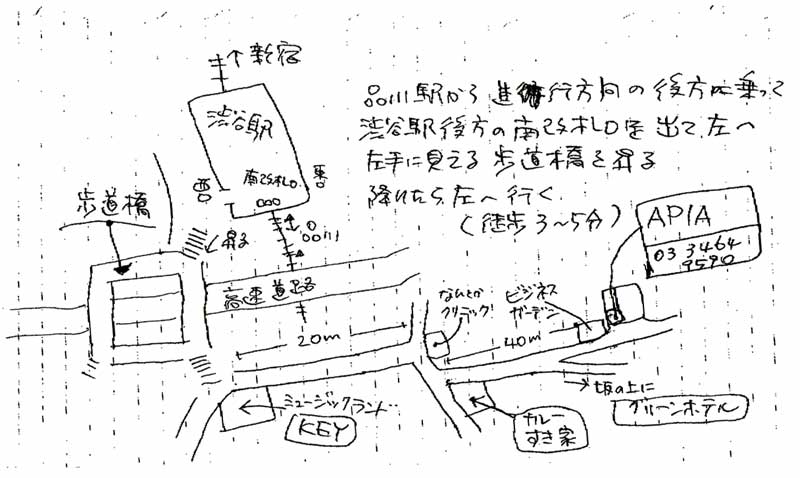 ↑新宿
渋谷駅
南改札口
西口
東口
品川
歩道橋
昇る
高速道路
品川駅から進行方向の後方に乗って
渋谷駅後方の南改札口を出て左へ
左手に見える歩道橋を昇る
降りたら左へ行く
(徒歩3～5分)
APIA
03 3464
9590
20m
なんとか
クリニック!
ビジネス
ガーデン
40m
←ミュージックランド…
KEY
カレー
すき家
→坂の上に
グリーンホテル